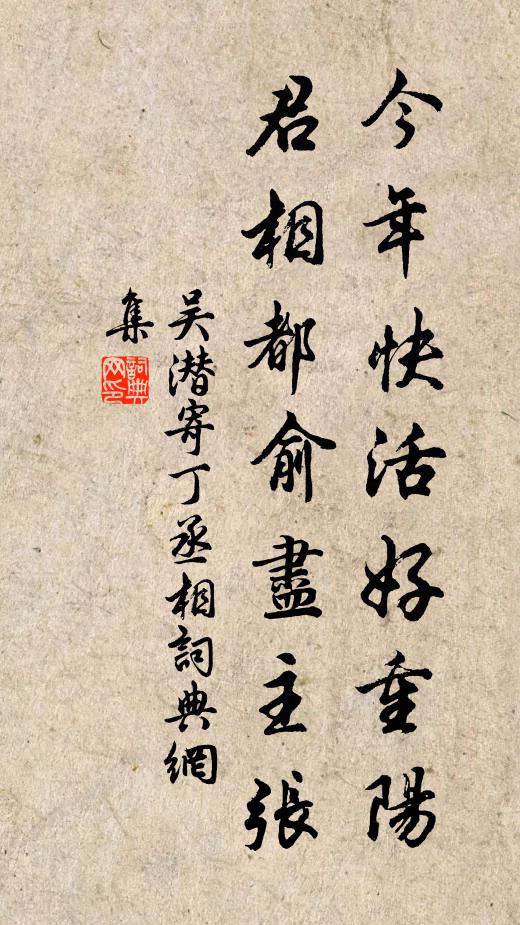 今年快活好重陽
君相都俞盡主張
吴潛寄丁丞相詞典網
集
詞典網印